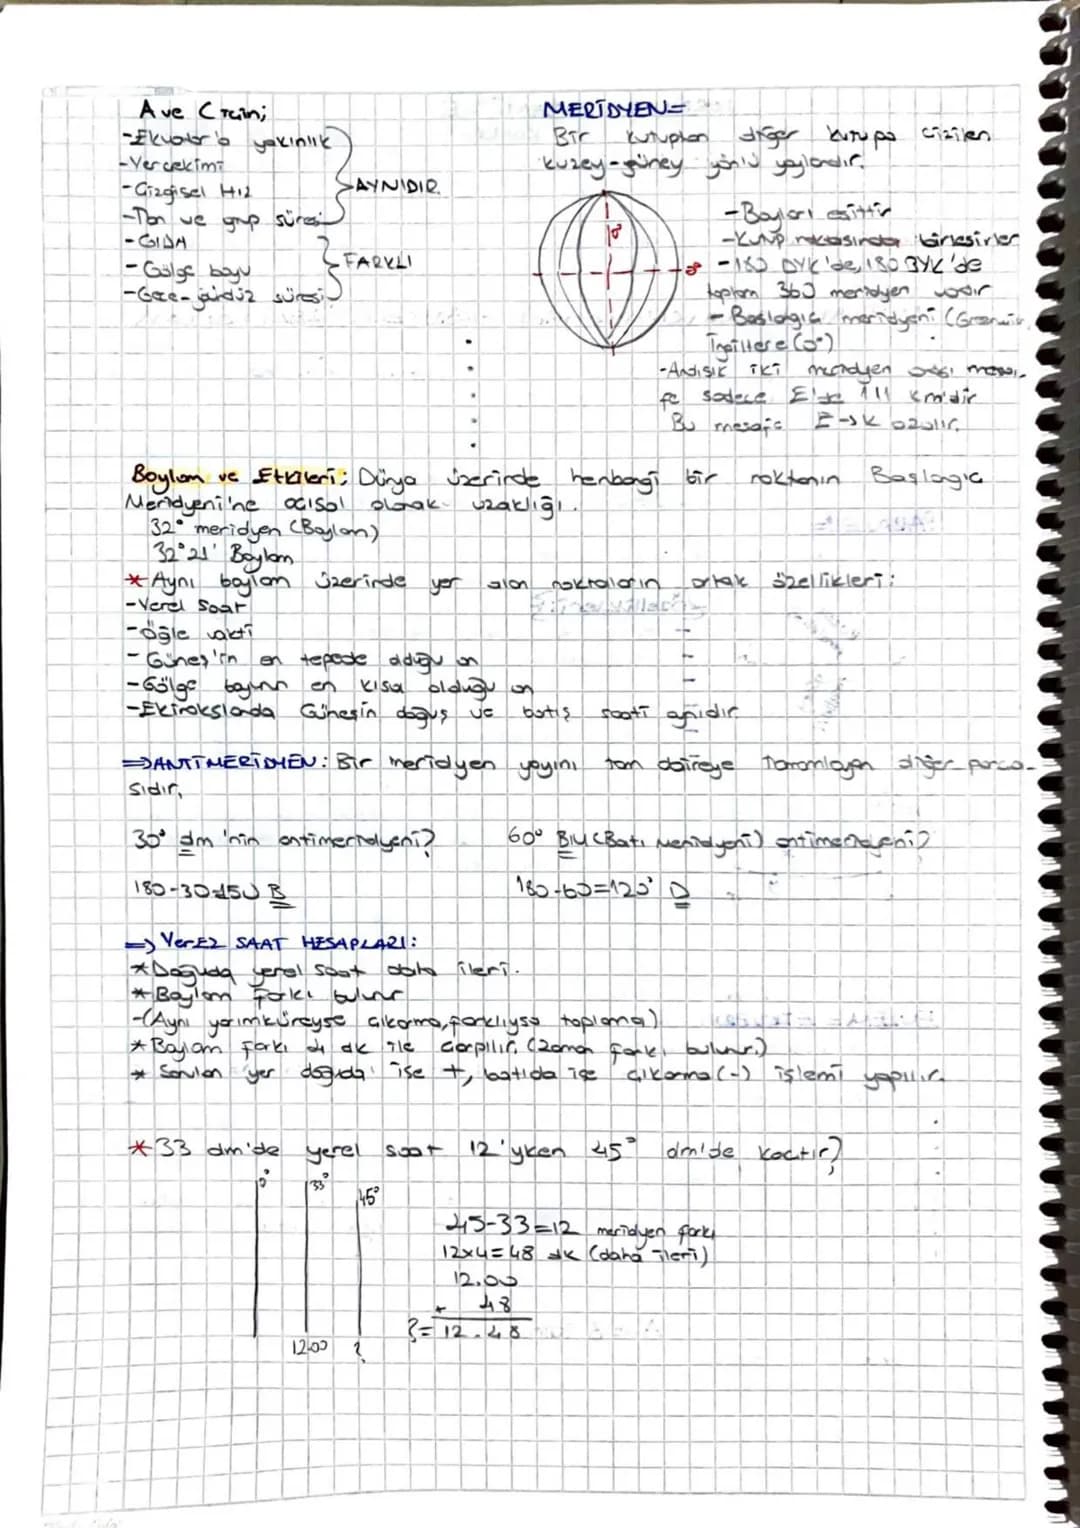 A ve C için;
-Ekvator'a yakınlık
-Yerçekimi
-Çizgisel Hız
-Tan ve grup süresi
AYNIDIR.
-GIDA
-Gölge boyu
-Gece-gündüz süresi
FARKLI
MERİDYEN=
Bir kutuptan diğer kutupa çizilen
kuzey-güney yönlü yaylardır.
0°
0°
-Boyları eşittir
-Kutup noktasında birleşirler
-180 DYK'de, 180 BYK'de
toplam 360 meridyen vardır
-Başlagıç meridyeni (Greenwich,
İngiltere (0°)
-Ardışık iki meridyen arası mesa-
fe sadece E'de 111 km'dir
Bu mesafe E->K azalır.
Boylam ve Etkileri: Dünya üzerinde herhangi bir noktanın Başlagıç
Meridyeni'ne açısal olarak uzaklığı.
32° meridyen (Boylam)
32°21' Boylam
* Aynı boylam üzerinde yer alan noktaların ortak özellikleri:
-Yerel Saat
-öğle vakti
-Güneş'in en tepede olduğu an
-Gölge boyunun en kısa olduğu an
-Ekinokslarda Güneşin doğuş ve batış saati aynıdır.
=>ANTİMERİDYEN: Bir meridyen yayını tam daireye tamamlayan diğer parça-
sıdır.
30° dm'nin antimeridyeni?
60° BM (Batı Meridyeni) antimeridyeni?
180-30=150 B
180-60=120° D
=> YEREL SAAT HESAPLARI:
*Doğuda yerel saat daha ileri.
*Boylam farkı bulunur
-(Aynı yarımküreyse çıkarma, farklıysa toplama)
*Boylam farkı 4 dk ile çarpılır. (zaman farkı bulunur.)
* Sorulan yer doğuda ise +, batıda ise çıkarma (-) işlemi yapılır.
*33 dm'de yerel saat 12'yken 45° dm'de kaçtır?
0°
33°
45°
12.00
?
45-33=12 meridyen farkı
12x4=48 dk (daha ileri)
12.00
+ 48
?= 12.48